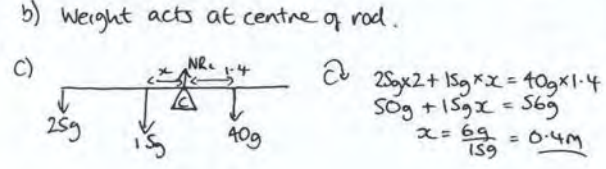 b) Weight acts at centre of rod.
c)
x NRc 1.4
C
25g 15g 40g
C↷ 25g×2 + 15g×x = 40g×1.4
50g + 15gx = 56g
x = 6g/15g = 0.4m